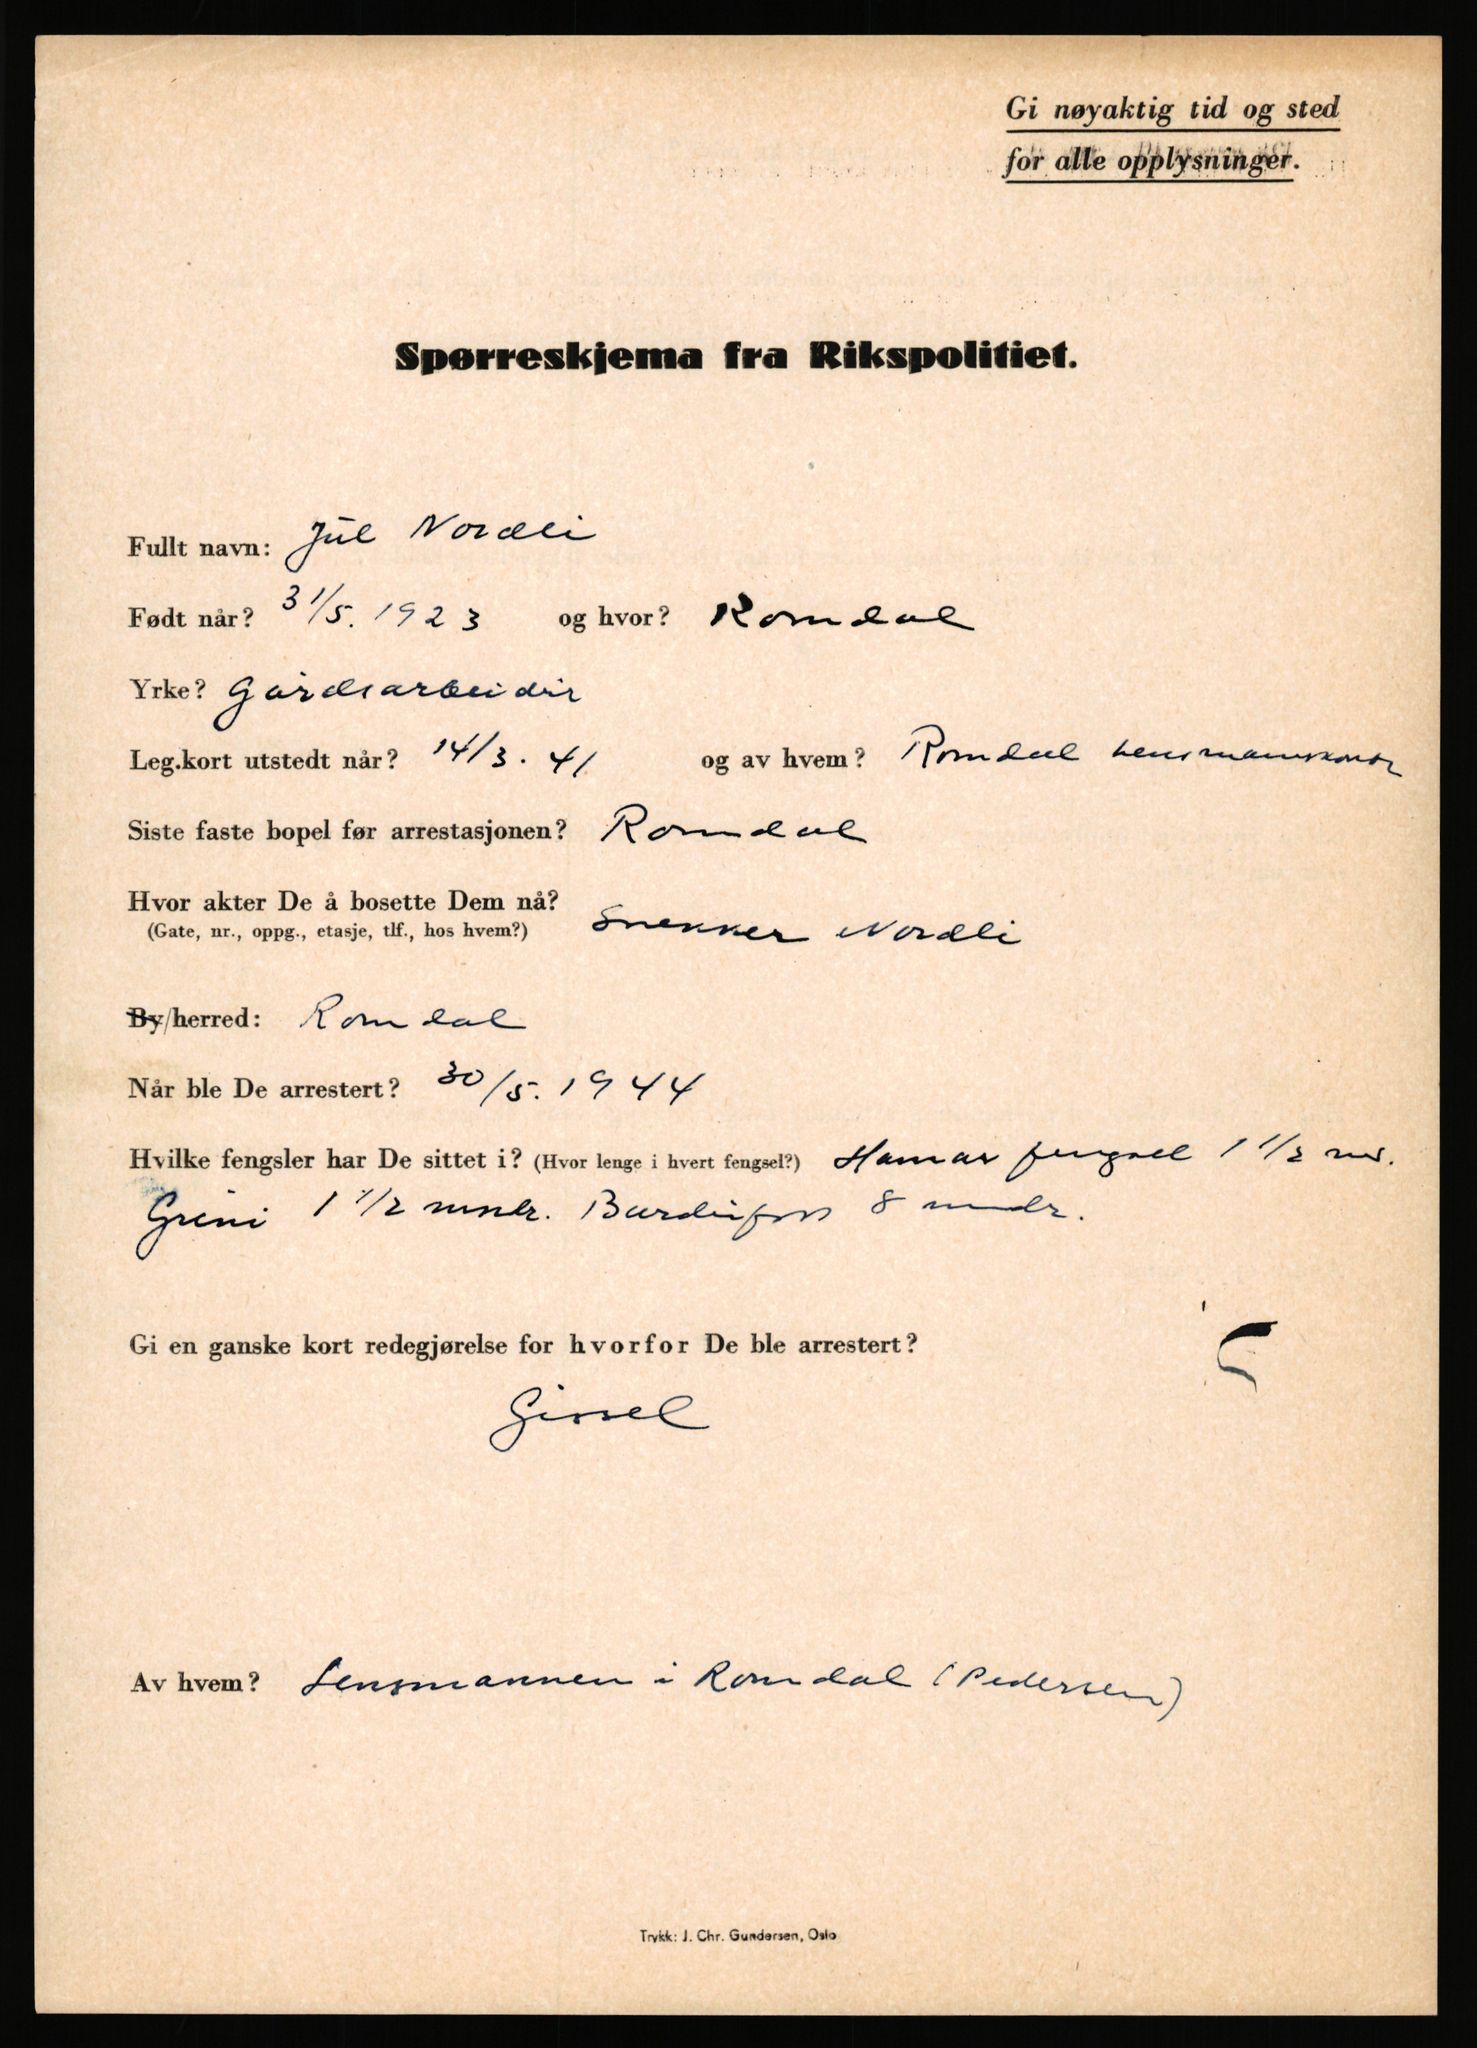 Gi nøyaktig tid og sted
for alle opplysninger.
Spørreskjema fra Rikspolitiet.
Fullt navn: Jul Nordli
Født når? 31/5. 1923 og hvor? Romdal
Yrke? Gårdsarbeider
Leg.kort utstedt når? 14/3. 41. og av hvem? Romdal Lensmannskontor
Siste faste bopel før arrestasjonen? Romdal
Hvor akter De å bosette Dem nå?
(Gate, nr., oppg., etasje, tlf., hos hvem?) Snekker Nordli
By/herred: Romdal
Når ble De arrestert? 30/5. 1944
Hvilke fengsler har De sittet i? (Hvor lenge i hvert fengsel?) Hamar fengsel 1 1/2
Grini 1 1/2 mndr. Bardufoss 8 mndr.
Gi en ganske kort redegjørelse for hvorfor De ble arrestert?
Gissel
Av hvem? Lensmannen i Romdal (Pedersen)
Trykk: J. Chr. Gundersen, Oslo